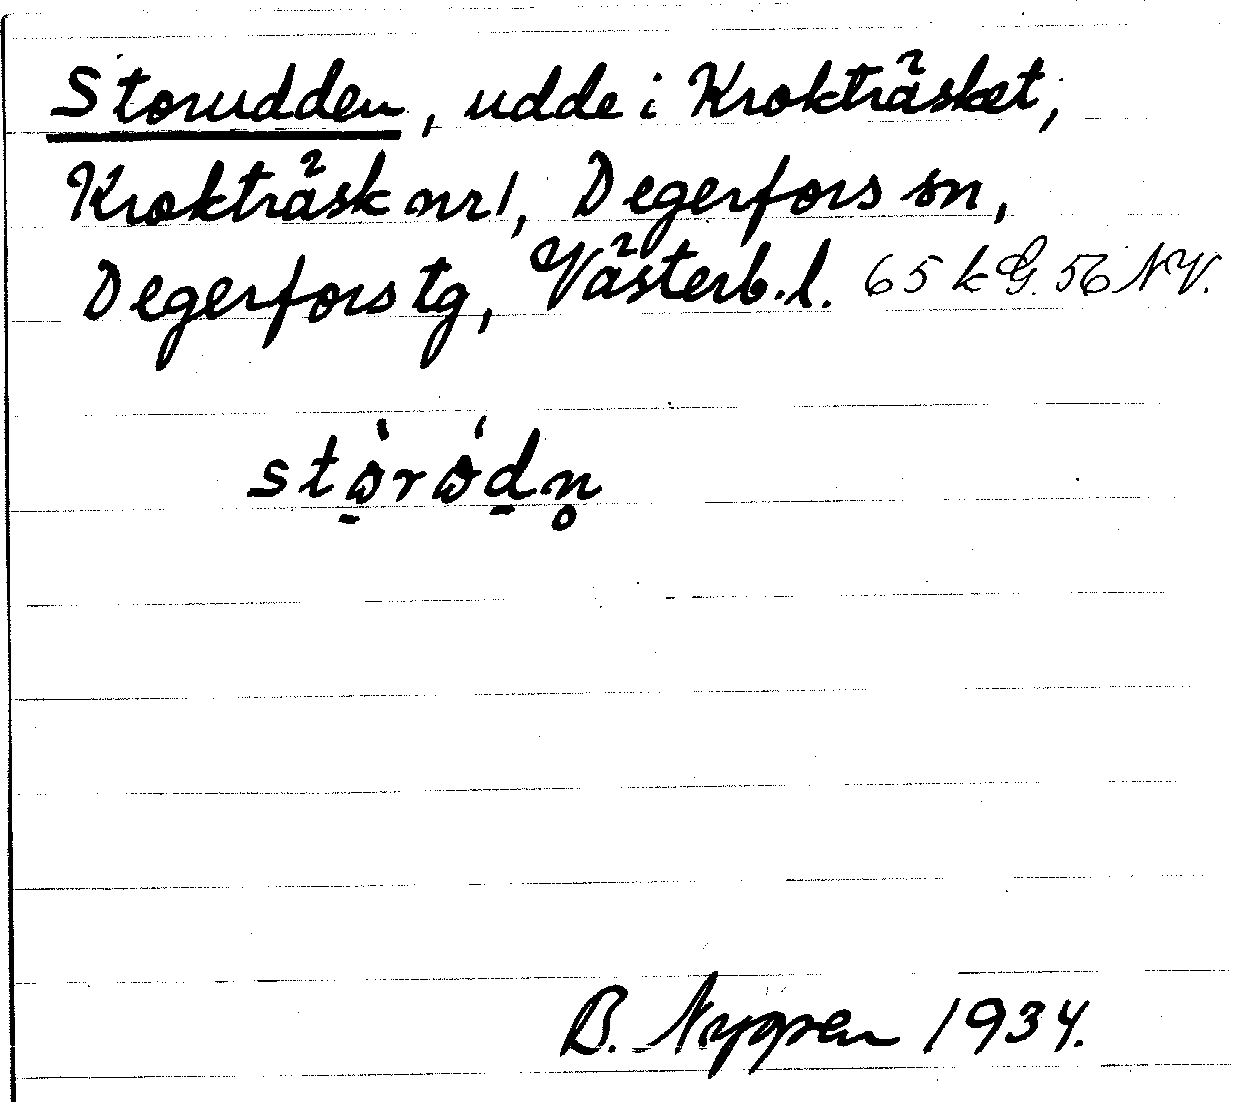 Storudden, udde i Krokträsket,
Krokträsk nr 1, Degerfors sn,
Degerfors tg, Västerb. l. 65 k G. 56 NV.
stòródn̥
B. Nygren 1934.